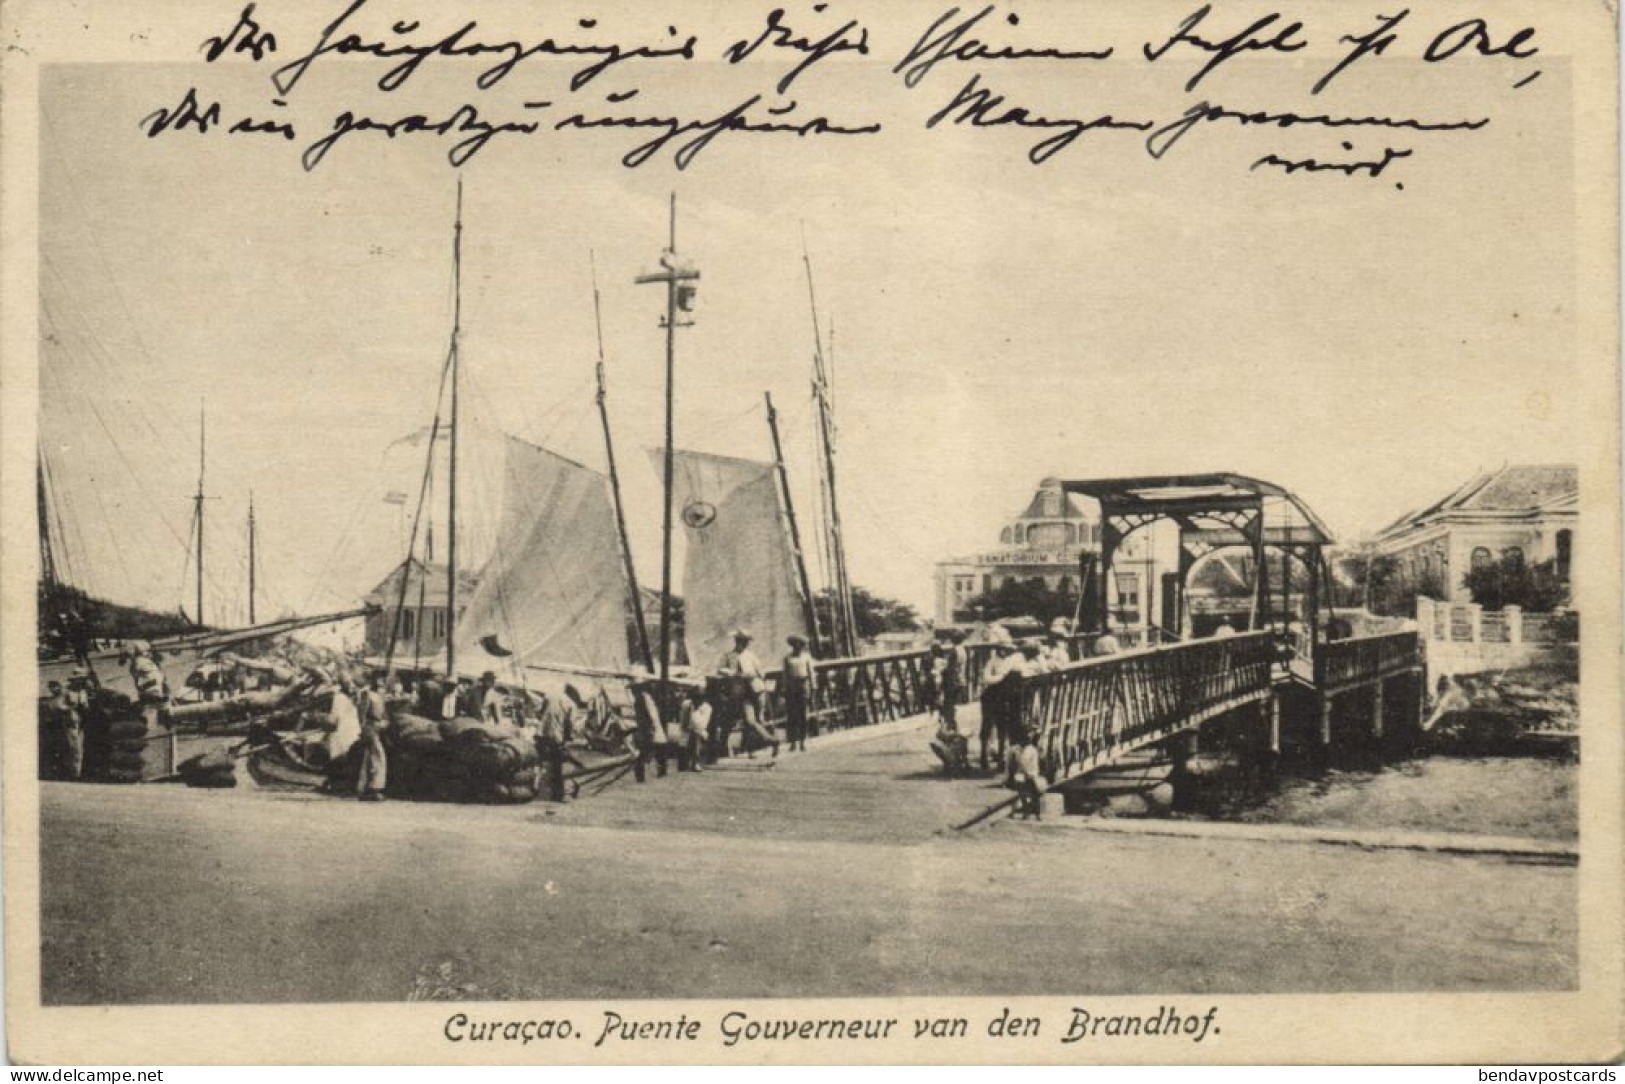 das Haupterzeugnis dieser schönen Insel ist Oel,
das in geradezu ungeheuren Mengen gewonnen
wird.
SANATORIUM
Curaçao. Puente Gouverneur van den Brandhof.
delcampe.net
bendavpostcards